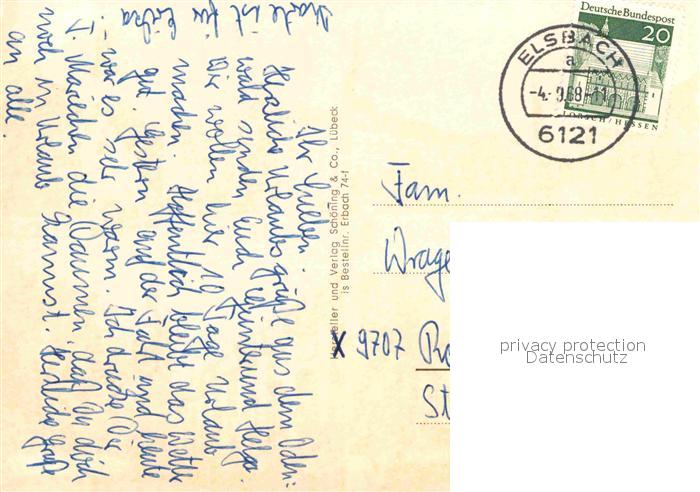 Marke ist für Erika!
Ihr Lieben.
Herzliche Urlaubsgrüße aus dem Oden-
wald senden Euch Günter und Helga.
Wir wollen hier 10 Tage Urlaub
machen. Hoffentlich bleibt das Wetter
gut. Gestern auf der Fahrt und heute
war es sehr warm. Ich drücke Dir
Mariechen die Daumen, daß Du doch
noch in Urlaub kannst. Herzliche Grüße
an alle.
Hersteller und Verlag Schöning & Co., Lübeck
is Bestellnr. Erbach 74-f
Deutsche Bundespost
20
LORSCH/HESSEN
ELSBACH
a
-4.-9.68-11
6121
Fam.
Wrage
X 9707
St
privacy protection
Datenschutz